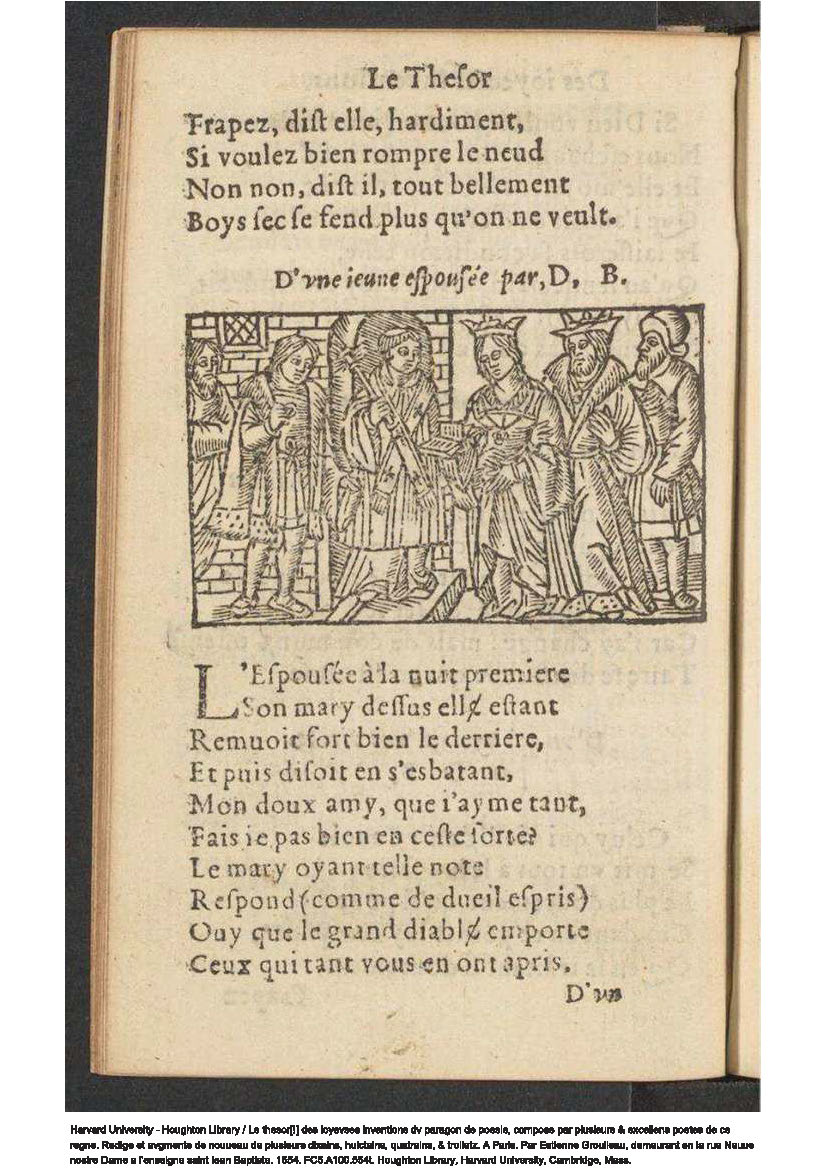 Le Theſor
Frapez, diſt elle, hardiment,
Si voulez bien rompre le neud
Non non, diſt il, tout bellement
Boys ſec ſe fend plus qu'on ne veult.
D'vne ieune eſpouſée par, D, B.
L'Eſpouſée à la nuit premiere
Son mary deſſus elle̸ eſtant
Remuoit fort bien le derriere,
Et puis diſoit en s'esbatant,
Mon doux amy, que i'ayme tant,
Fais ie pas bien en ceſte ſorte?
Le mary oyant telle note
Reſpond (comme de dueil eſpris)
Ouy que le grand diable̸ emporte
Ceux qui tant vous en ont apris.
D'vn
Harvard University - Houghton Library / Le thesor[!] des ioyevses inventions dv paragon de poesie, compose par plusieurs & excellens poetes de ce
regne. Redige et avgmente de nouueau de plusieurs dixains, huictains, quatrains, & triolletz. A Paris. Par Estienne Groulleau, demeurant en la rue Neuue
nostre Dame a l'enseigne saint Iean Baptiste. 1554. FC5.A100.554t. Houghton Library, Harvard University, Cambridge, Mass.